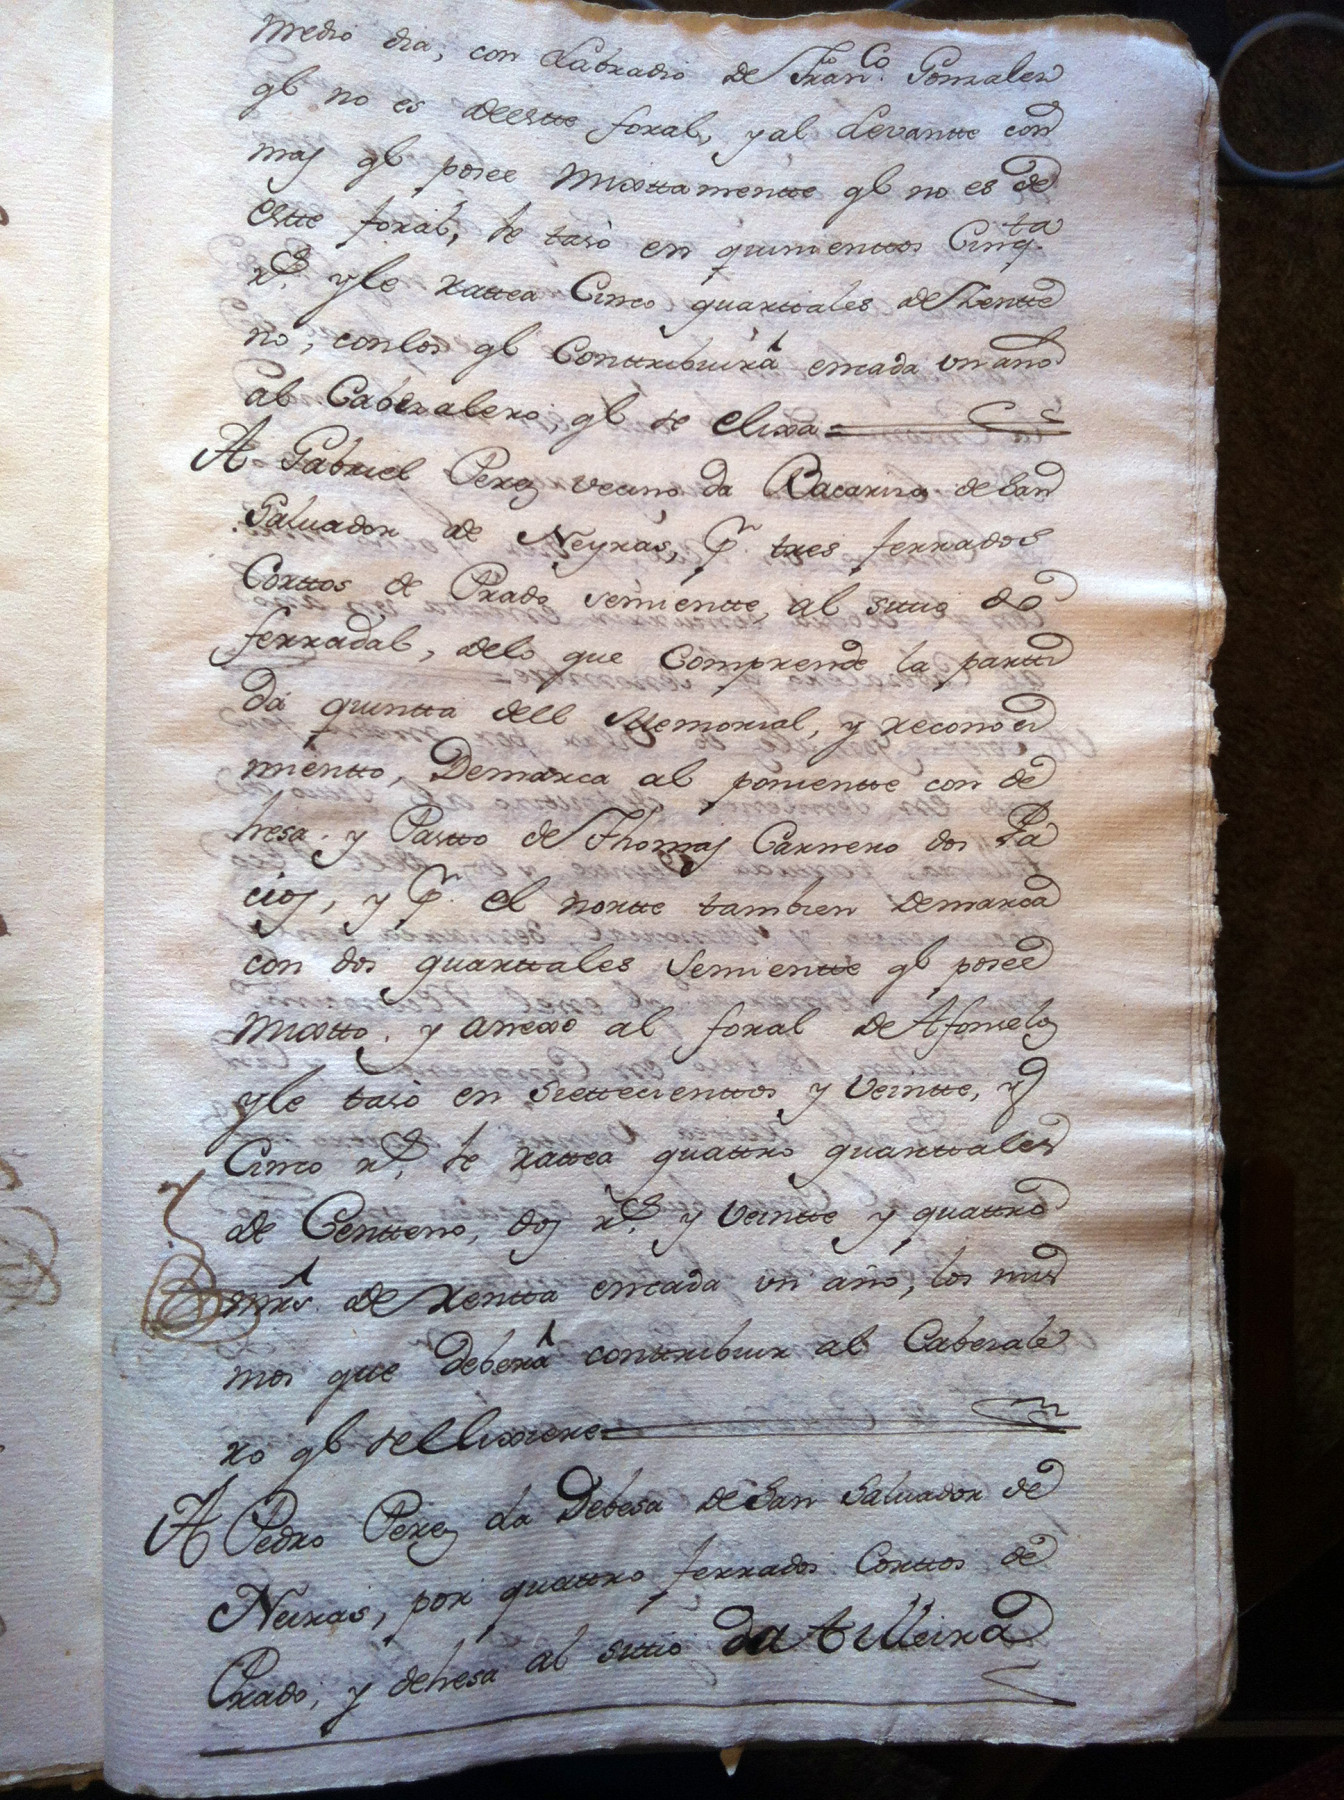 medio dia, con Labradio de Fran.co Gonzalez
qe no es deestte foral, y al Levantte con
mas qe posee mixttamentte qe no es de
estte foral, se tasò en quinienttos Cinq.ta
rs. y le rattea Cinco quarttales de Zentte
no, con los qe Conttribuirá en cada un año
al Cabezalero, qe se elixa=
A Gabriel Perez vecino da Bacariza de San
Saluador de Neyras, Pr. tres ferrados
Corttos de Prado semientte, al sittio do
ferradal, delo que Comprende la partti
da quintta dell Memorial, y reconoci
mientto, Demarca al ponientte con de
hesa, y Pastto de Thomas Carnero dos Pa
cios, y Pr. el nortte tambien demarca
con dos quarttales semientte qe posee
mixtto, y anexo al foral de Afonselos
y le tasò en Siettecienttos y Veintte, y
Cinco rs. le rattea quattro quarttales
de Centteno, dos rs. y Veintte y quattro
mrs. de rentta en cada un año, los mis
mos que deberá conttribuir al Cabezale
ro qe se ellixiere=
A Pedro Perez da Debesa de San Saluador de
Neiras, por quattro ferrados Corttos de
Prado, y dehesa al sittio da tilleira